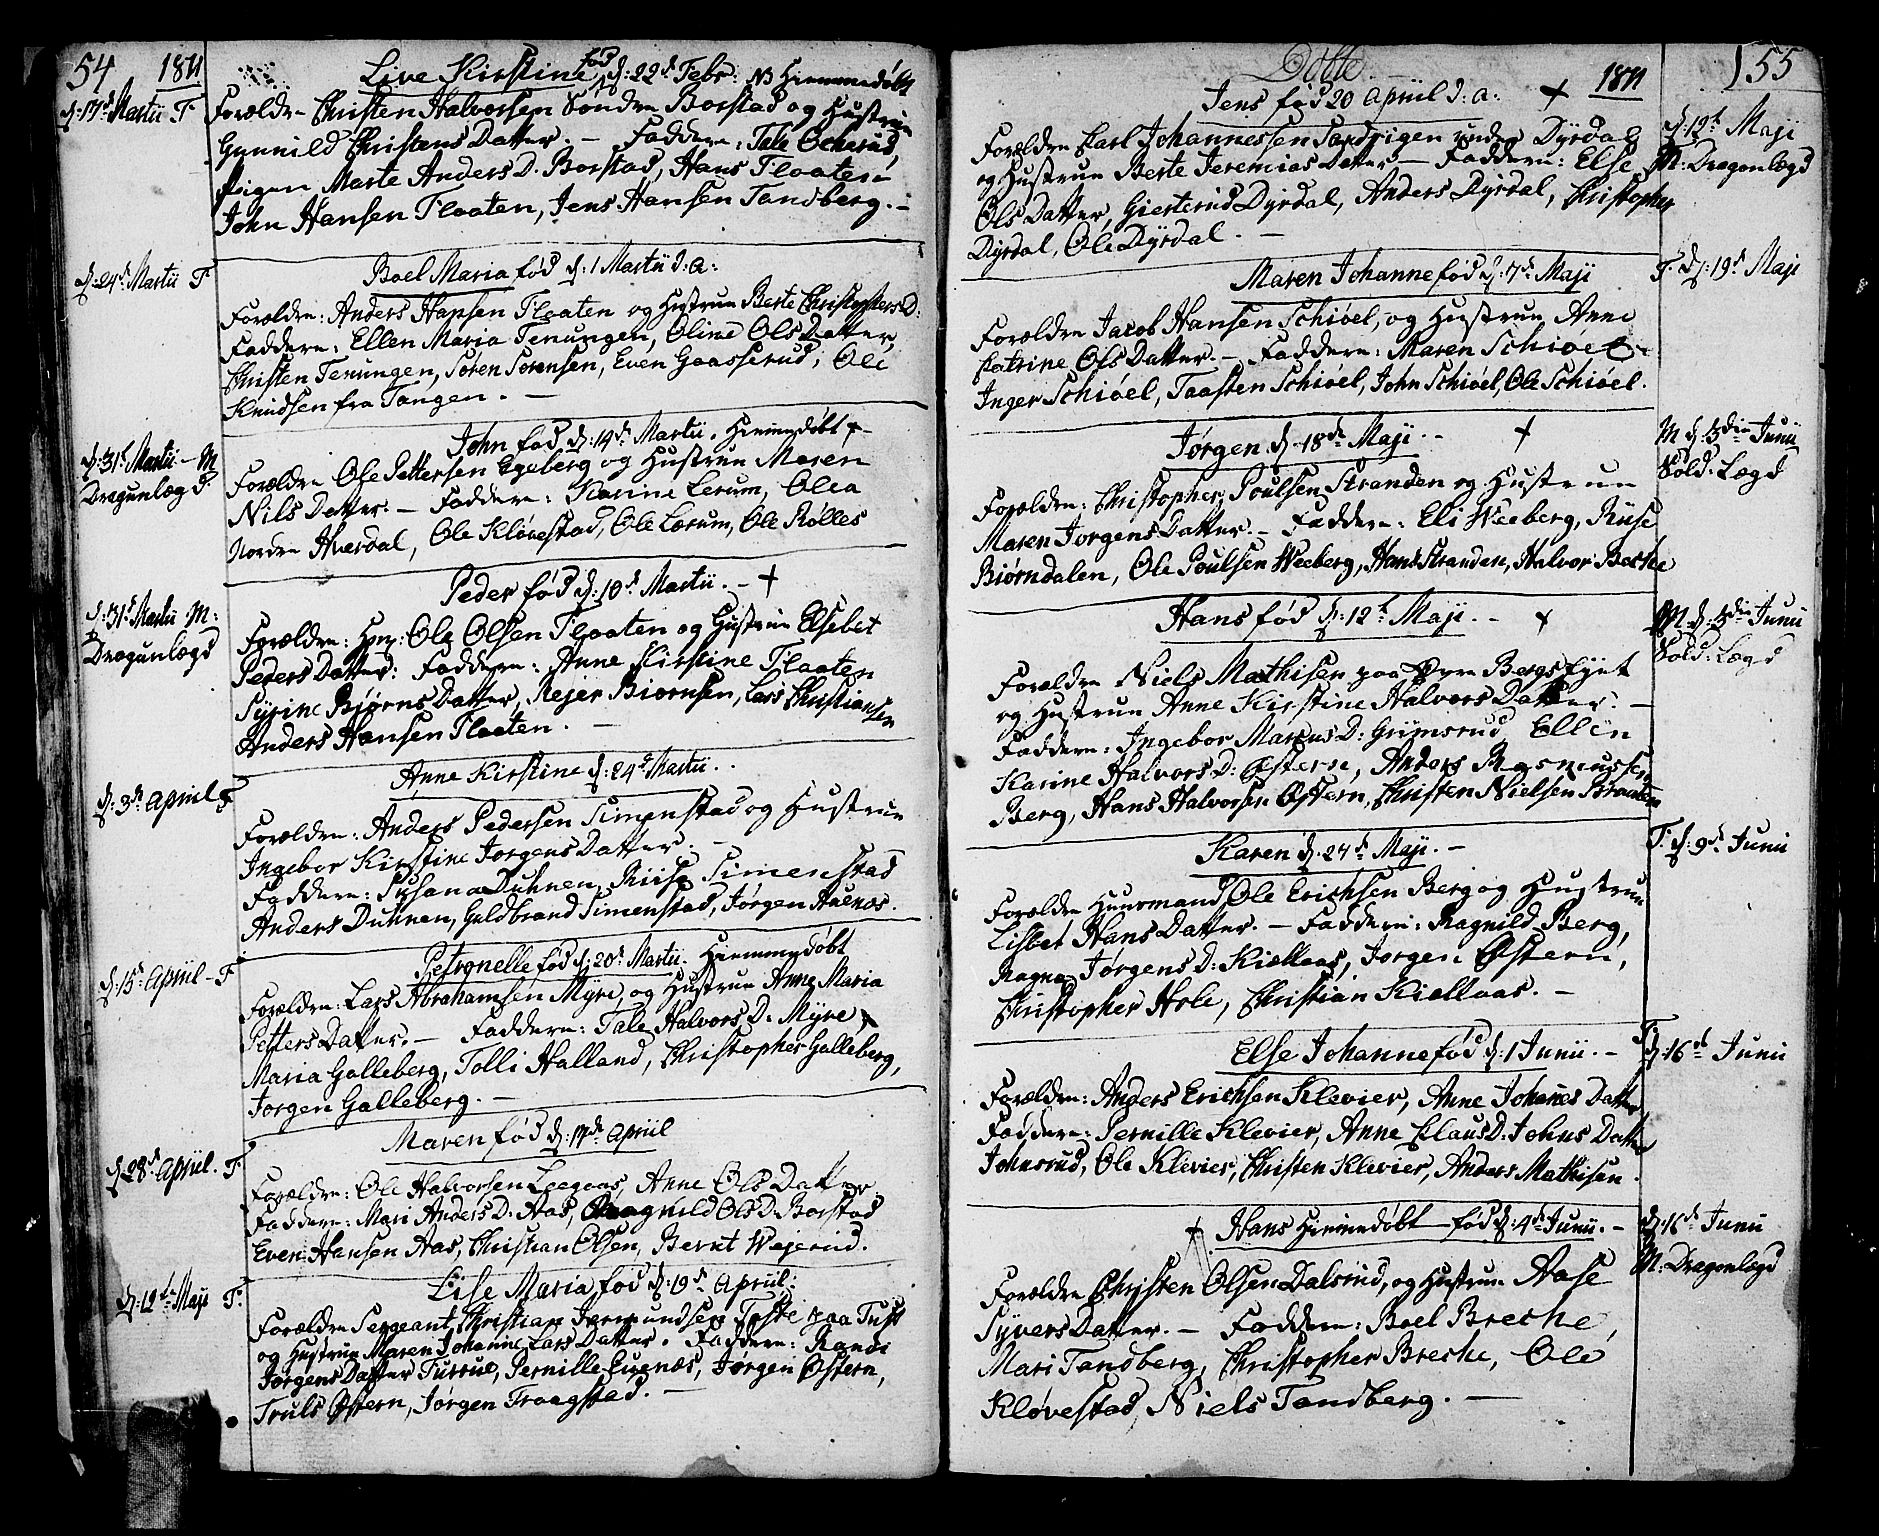 54 1811
d: 17d Martii F
Live Kirstine fød d: 22d Febr: NB Hiemmedøbt
Forældre Christen Halvorsen Søndre Borstad og Hustrue
Gunnild Christens Datter. — Faddere: Tale
Pigen Marte Anders D. Borstad, Hans Flaaten
John Hansen Flaaten, Jens Hansen Tandberg. —
d: 24d Martii F
Boel Maria fød d: 1 Martii d: a:
Forældre: Anders Hansen Flaaten og Hustrue Berte Christophers D:
Faddere: Ellen Maria Tenungen, Oline Ols Datter,
Christen Tenungen, Søren Sørensen, Even Gaasserud, Ole
Knudsen fra Tangen. —
d: 31t Martii — M
Dragunlægd
John fød d: 14d Martii. Hiemmedøbt +
Forældre Ole Pettersen Egeberg og Hustrue Maren
Nils Datter. — Faddere: Karine Lerum, Olea
Nordre Hverdal, Ole Kløvestad, Ole Lærum, Ole Rølles
d: 31t Martii M:
Dragunlægd
Peder fød d: 10d Martii. — +
Forældre: Ole Olsen Flaaten og Hustrue Elsebet
Peders Datter: Faddere: Anne Kirstine Flaaten
Syrine Bjørns Datter, Rejer Biørnsen, Lars Christiansen
Anders Hansen Flaaten. —
d: 3d April F
Anne Kirstine d: 24d Martii. .
Forældre: Anders Pedersen Simenstad og Hustrue
Ingebor Kirstine Jørgens Datter. —
Faddere: Susana Duhnen, Riise Simenstad
Anders Duhnen, Guldbrand Simenstad, Jørgen Auenæs.
d: 15d Apriil — F
Petronelle fød d: 20d Martii. Hiemmedøbt
Forældre: Lars Abrahamsen Myre, og Hustrue Anne Maria
Petters Datter. — Faddere: Tale Halvors D: Myre,
Maria Galleberg, Tolli Halland, Christopher Galleberg,
Jørgen Galleberg. —
d: 28d Apriil. F
Maren fød d: 17d Apriil
Forældre: Ole Halvorsen Leegaas, Anne Ols Datter
Faddere: Mari Anders D: Aas, Ragnild Ols D: Borstad
Even Hansen Aas, Christian Olsen, Bernt Wejerud.
d: 12d Maji F.
Lise Maria fød d: 19d Apriil:
Forældre Sergeant Christian Jermundsen Tofte paa Tuft
og Hustrue Maren Johanne Lars Datter. Faddere: Randi
Jørgens Datter Turrue, Pernille Euenæs, Jørgen Østern,
Truls Østern, Jørgen Fraagstad. —
Døbte. 1811 155
Jens fød 20 Apriil d: a: +
d: 12t Maji
M: Dragonlægd
Forældre Carl Johannessen under Dyrdal
og Hustrue Berte Jeremias Datter — Faddere: Else
Ols Datter, Gierterud Dyrdal, Anders Dyrdal, Christopher
Dyrdal, Ole Dyrdal. —
Maren Johanne fød d: 7d Maji
F. d: 19d Maji
Forældre Jacob Hansen Schiøel, og Hustrue Anne
Catrine Ols Datter. — Faddere: Maren Schiøel
Inger Schiøel, Taasten Schiøel, John Schiøel, Ole Schiøel.
Jørgen d: 18d Maji. — +
M d: 3die Junii
Sold: Lægd
Forældre: Christopher Poulsen Stranden og Hustrue
Maren Jørgens Datter. — Faddere: Eli Weeberg, Riise
Biørndalen, Ole Poulsen Weeberg, Hans Stranden, Halvor Berke
Hans fød d: 12t Maji. — +
M d: 3die Junii
Sold: Lægd
Forældre Niels Mathisen paa Øvre Berg
og Hustrue Anne Kirstine Halvors Datter. —
Faddere: Ingebor Marcus D: Grimsrud Ellen
Karine Halvors D: Østern, Anders Rasmussen
Berg, Hans Halvorsen Østern, Christen Nielsen Braaten
Karen d: 27d Maji. —
F. d: 9d Junii
Forældre Huusmand Ole Erichsen Berg og Hustrue
Lisbet Hans Datter. — Faddere: Ragnild Berg,
Ragna Jørgens D: Kiællaas, Jørgen Østern,
Christopher Hole, Christian Kiellaas. —
Else Johanne fød d: 1 Junii. —
F. d: 16d Junii
Forældre: Anders Erichsen Klevier, Anne Johanes Datter
Faddere: Pernille Klevier, Anne Claus D: Johns Datter
Johnsrud, Ole Klevier, Christen Klevier, Anders Mathisen.
+ Hans Hiemmedøbt fød d: 4d Junii. —
d: 16d Junii
M: Dragonlægd
Forældre Christen Olsen Dalsrud, og Hustrue Aase
Syvers Datter. — Faddere: Boel Breche,
Mari Tandberg, Christopher Breche, Ole
Kløvestad, Niels Tandberg. —